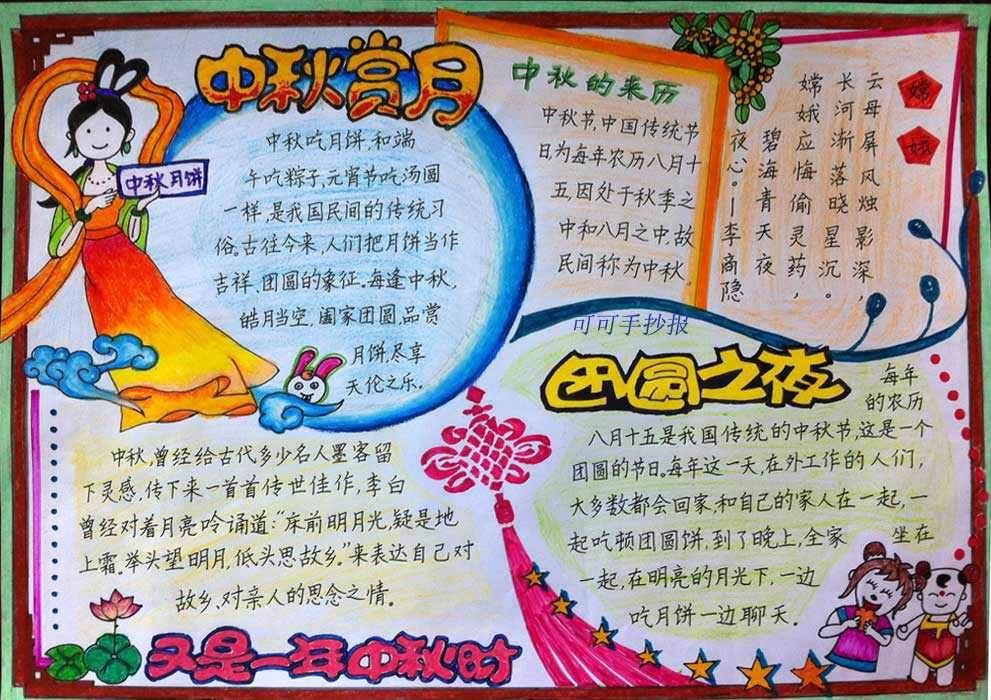 中秋赏月
中秋月饼
中秋吃月饼,和端
午吃粽子,元宵节吃汤圆
一样,是我国民间的传统习
俗。古往今来,人们把月饼当作
吉祥、团圆的象征。每逢中秋,
皓月当空,阖家团圆,品赏
月饼,尽享
天伦之乐。
中秋的来历
中秋节,中国传统节
日为每年农历八月十
五,因处于秋季之
中和八月之中,故
民间称为中秋。
嫦娥
云母屏风烛影深,
长河渐落晓星沉。
嫦娥应悔偷灵药,
碧海青天夜
夜心。—李商隐
可可手抄报
中秋,曾经给古代多少名人墨客留
下灵感,传下来一首首传世佳作,李白
曾经对着月亮吟诵道:“床前明月光,疑是地
上霜。举头望明月,低头思故乡。”来表达自己对
故乡、对亲人的思念之情。
又是一年中秋时
团圆之夜
每年
的农历
八月十五是我国传统的中秋节,这是一个
团圆的节日。每年这一天,在外工作的人们,
大多数都会回家,和自己的家人在一起,一
起吃顿团圆饼,到了晚上,全家 坐在
一起,在明亮的月光下,一边
吃月饼一边聊天.